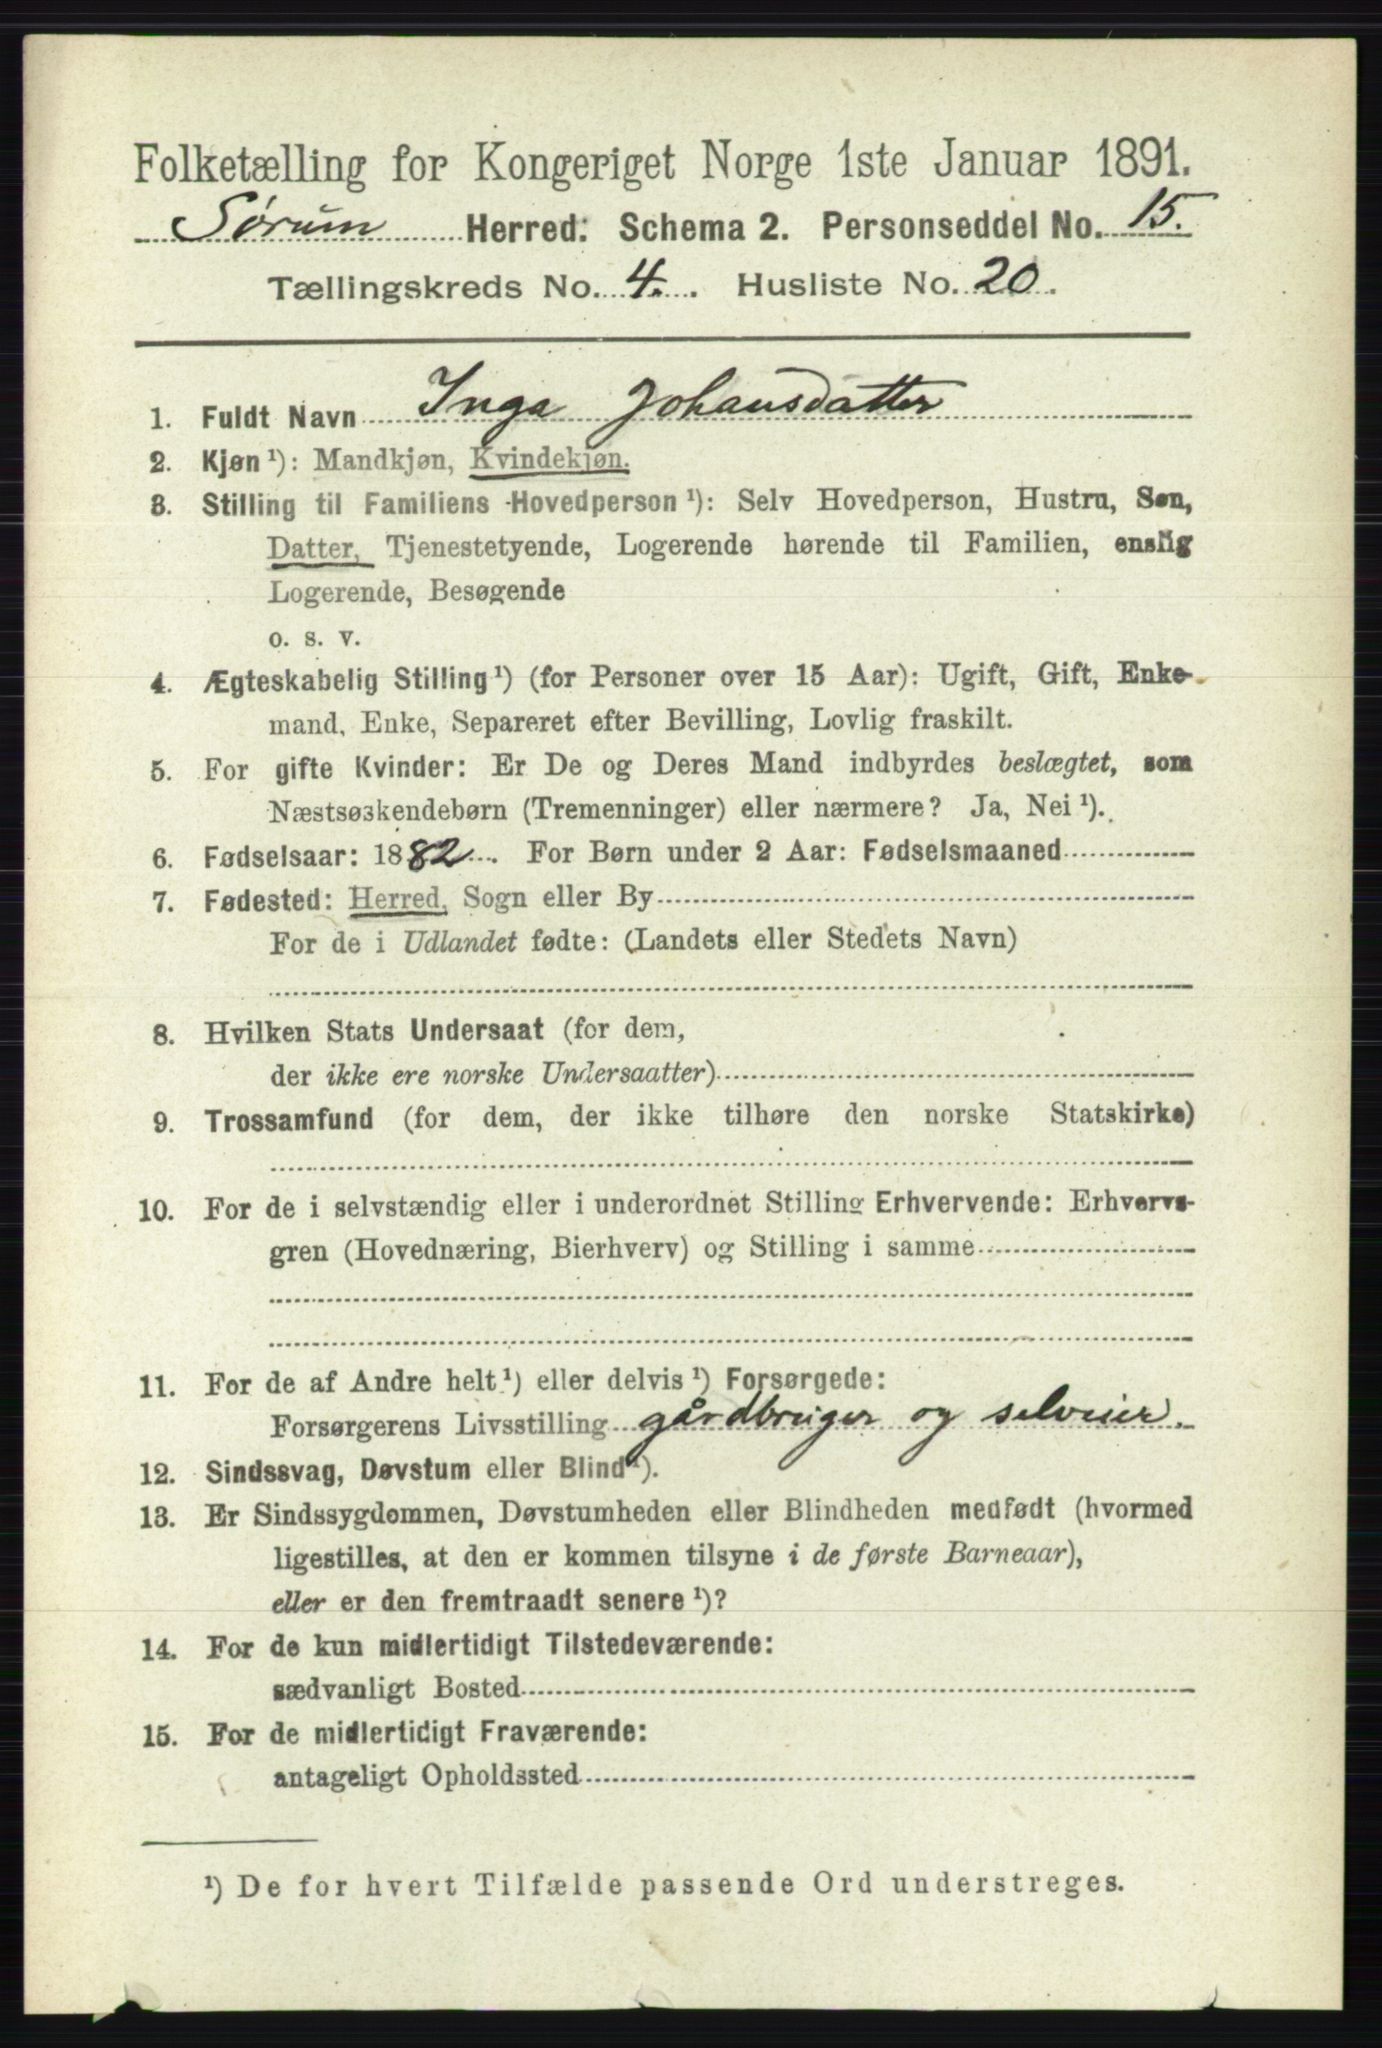 Folketælling for Kongeriget Norge 1ste Januar 1891.
Sørum Herred: Schema 2. Personseddel No. 15.
Tællingskreds No. 4. Husliste No. 20.
1. Fuldt Navn Inga Johansdatter
2. Kjøn¹): Mandkjøn, Kvindekjøn.
3. Stilling til Familiens Hovedperson¹): Selv Hovedperson, Hustru, Søn,
Datter, Tjenestetyende, Logerende hørende til Familien, enslig
Logerende, Besøgende
o. s. v.
4. Ægteskabelig Stilling¹) (for Personer over 15 Aar): Ugift, Gift, Enke-
mand, Enke, Separeret efter Bevilling, Lovlig fraskilt.
5. For gifte Kvinder: Er De og Deres Mand indbyrdes beslægtet, som
Næstsøskendebørn (Tremenninger) eller nærmere? Ja, Nei¹).
6. Fødselsaar: 1882. For Børn under 2 Aar: Fødselsmaaned
7. Fødested: Herred, Sogn eller By
For de i Udlandet fødte: (Landets eller Stedets Navn)
8. Hvilken Stats Undersaat (for dem,
der ikke ere norske Undersaatter)
9. Trossamfund (for dem, der ikke tilhøre den norske Statskirke)
10. For de i selvstændig eller i underordnet Stilling Erhvervende: Erhvervs-
gren (Hovednæring, Bierhverv) og Stilling i samme
11. For de af Andre helt¹) eller delvis¹) Forsørgede:
Forsørgerens Livsstilling gårdbruger og selveier.
12. Sindssvag, Døvstum eller Blind¹).
13. Er Sindssygdommen, Døvstumheden eller Blindheden medfødt (hvormed
ligestilles, at den er kommen tilsyne i de første Barneaar),
eller er den fremtraadt senere¹)?
14. For de kun midlertidigt Tilstedeværende:
sædvanligt Bosted
15. For de midlertidigt Fraværende:
antageligt Opholdssted
¹) De for hvert Tilfælde passende Ord understreges.